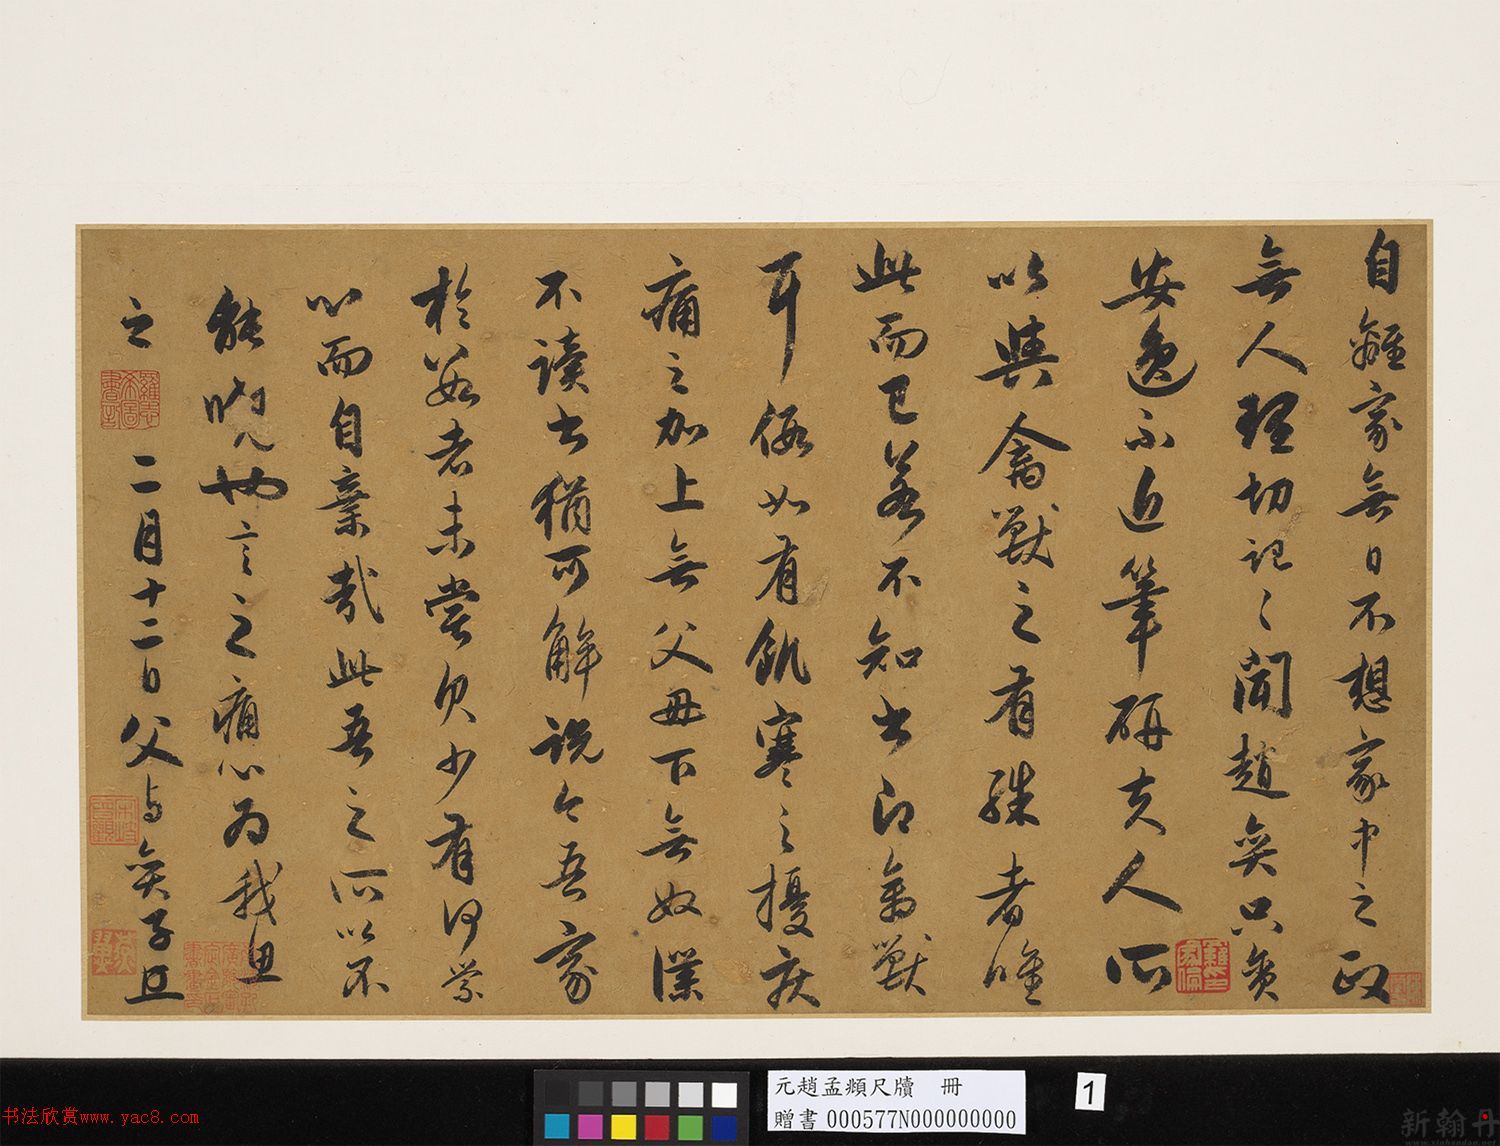 自離家無日不想家中之政
無人理切記〻聞趙奕只貪
安逸不近筆研夫人所
以與禽獸之有殊者唯
此而已若不知書即禽獸
耳假如有飢寒之擾疾
痛之加上無父母下無奴僕
不讀書猶可解說今吾家
於數者未嘗欠少有何縈
心而自棄哉此吾之所以不
能曉也言之痛心為我思
之 二月十二日父与奕子且
元趙孟頫尺牘 冊
贈書 000577N000000000
1
书法欣赏www.yac8.com
新翰丹